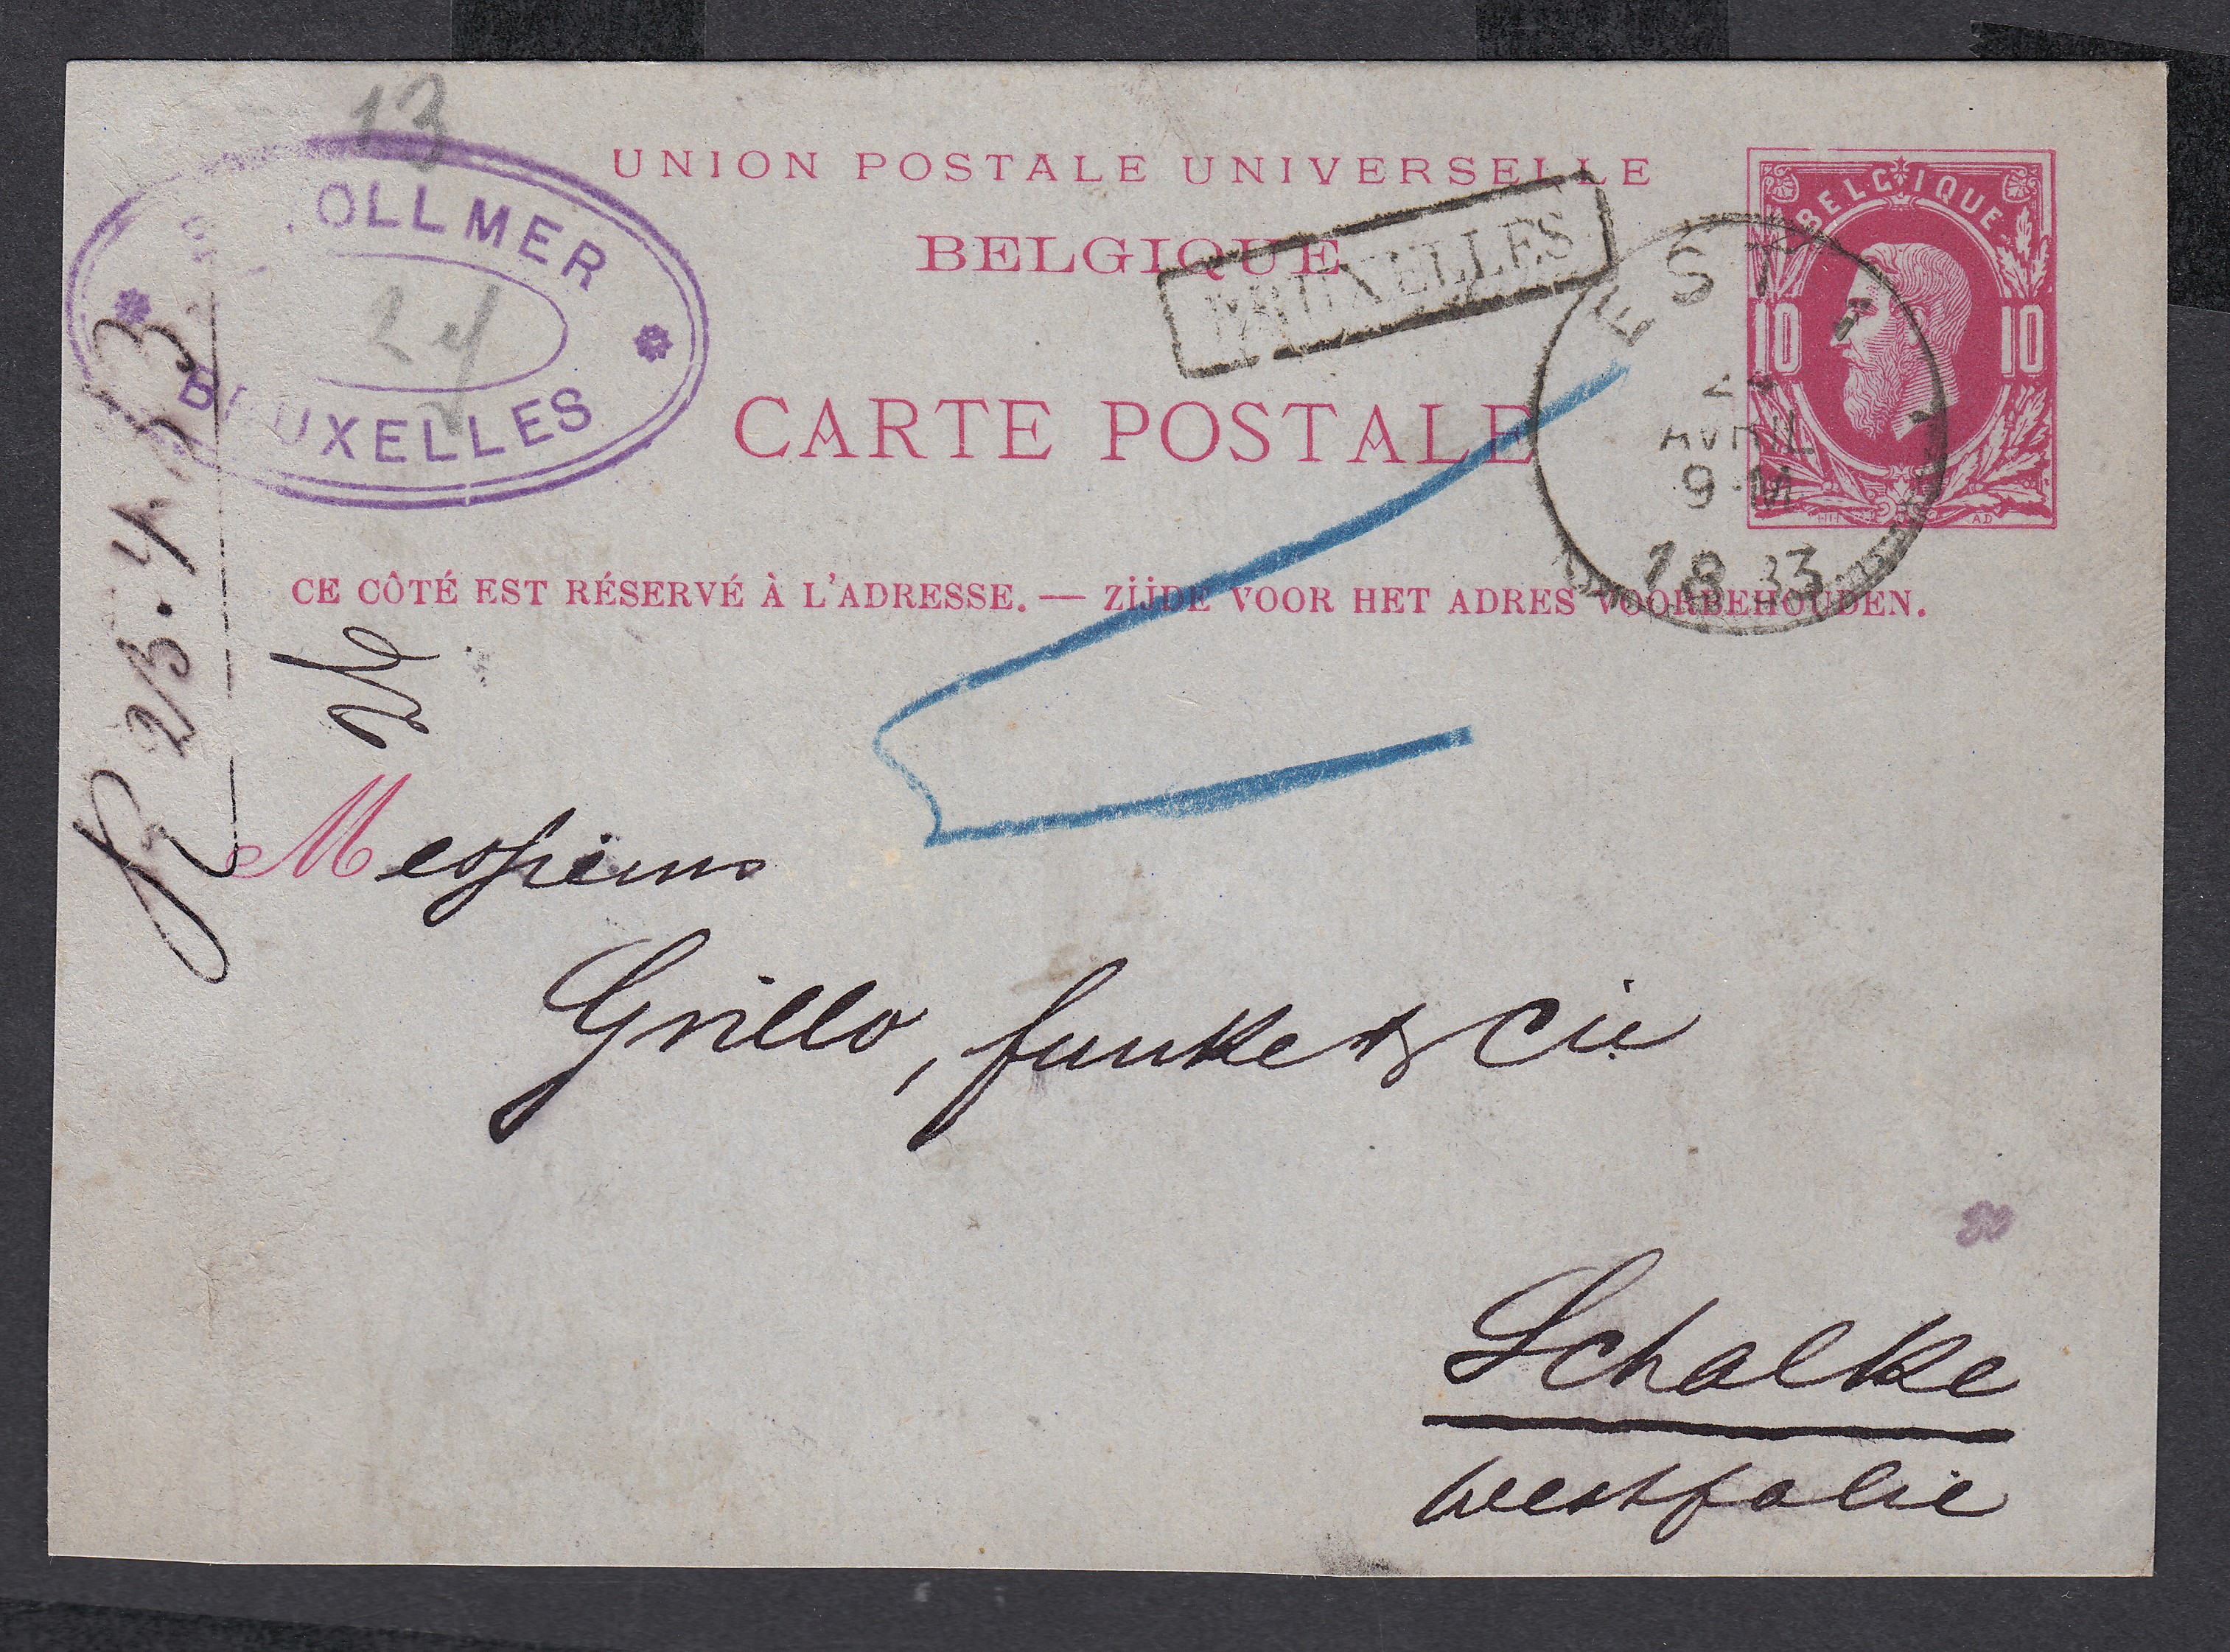 13
UNION POSTALE UNIVERSELLE
BELGIQUE
BELGIQUE
10 10
BRUXELLES
EST
AVRIL
9-M
OLLMER
24
BRUXELLES
CARTE POSTALE
CE CÔTÉ EST RÉSERVÉ À L'ADRESSE. — ZIJDE VOOR HET ADRES VOORBEHOUDEN.
R 23.4.83
Messieurs
Grillo, Funke & Cie
Schalke
Westfalie